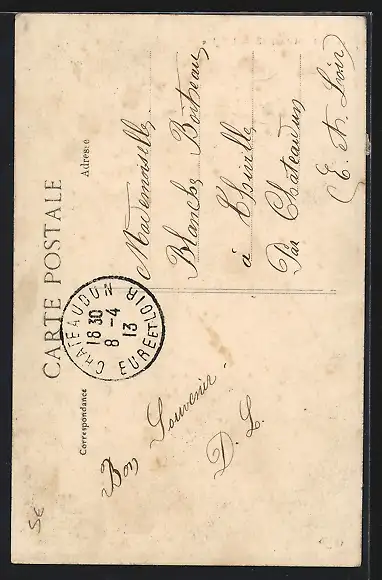 CARTE POSTALE
Correspondance
Adresse
CHATEAUDUN
18 30
8 - 4
13
EURE ET LOIR
Bon Souvenir
D. L.
Mademoiselle
Blanche
à Thiville
Par Châteaudun
(E. et. Loir)